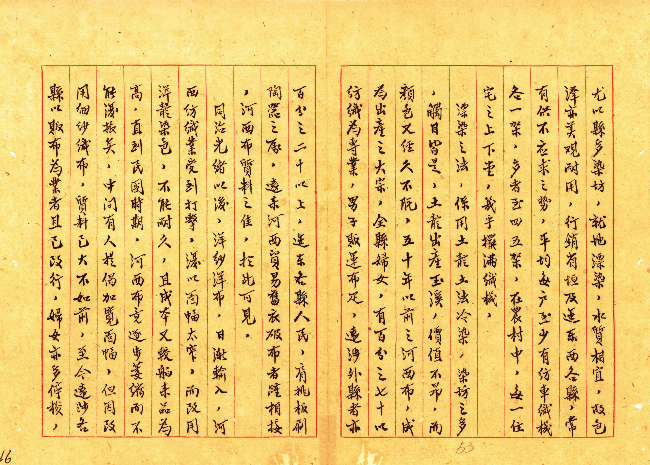 尤以縣多染坊，就地漂染，水質相宜，故色
澤亦美观耐用，行銷省垣及迤东西各縣，常
有供不应求之势，平均每户至少有纺車織機
各一架，多者至四五架，在農村中，每一住
宅之上下堂，幾乎摆满織機。
漂染之法，係用土靛土法冷染，染坊之多
，觸目皆是，土靛出產玉溪，價值不昂，而
顏色又经久不脱，五十年以前之河西布，成
為出產之大宗，全縣婦女，有百分之七十以
纺織為專業，男子販運布疋，遠涉外縣者亦
百分之二十以上，迤东各縣人民，有挑板刷
陶器之属，遠来河西貿易舊衣破布者踵相接
，河西布質料之佳，於此可見。
同治光緒以後，洋纱洋布，日漸输入，河
西纺織業受到打擊，後以面幅太窄，而改用
洋靛染色，不能耐久，且成本又較舶来品為
高，直到民國時期，河西布竟逐步萎縮而不
能後振矣，中间有人提倡加寬面幅，但因改
用细纱織布，質料已大不如前，至今遠涉各
縣以販布為業者且已改行，婦女亦多停梭，
53
66